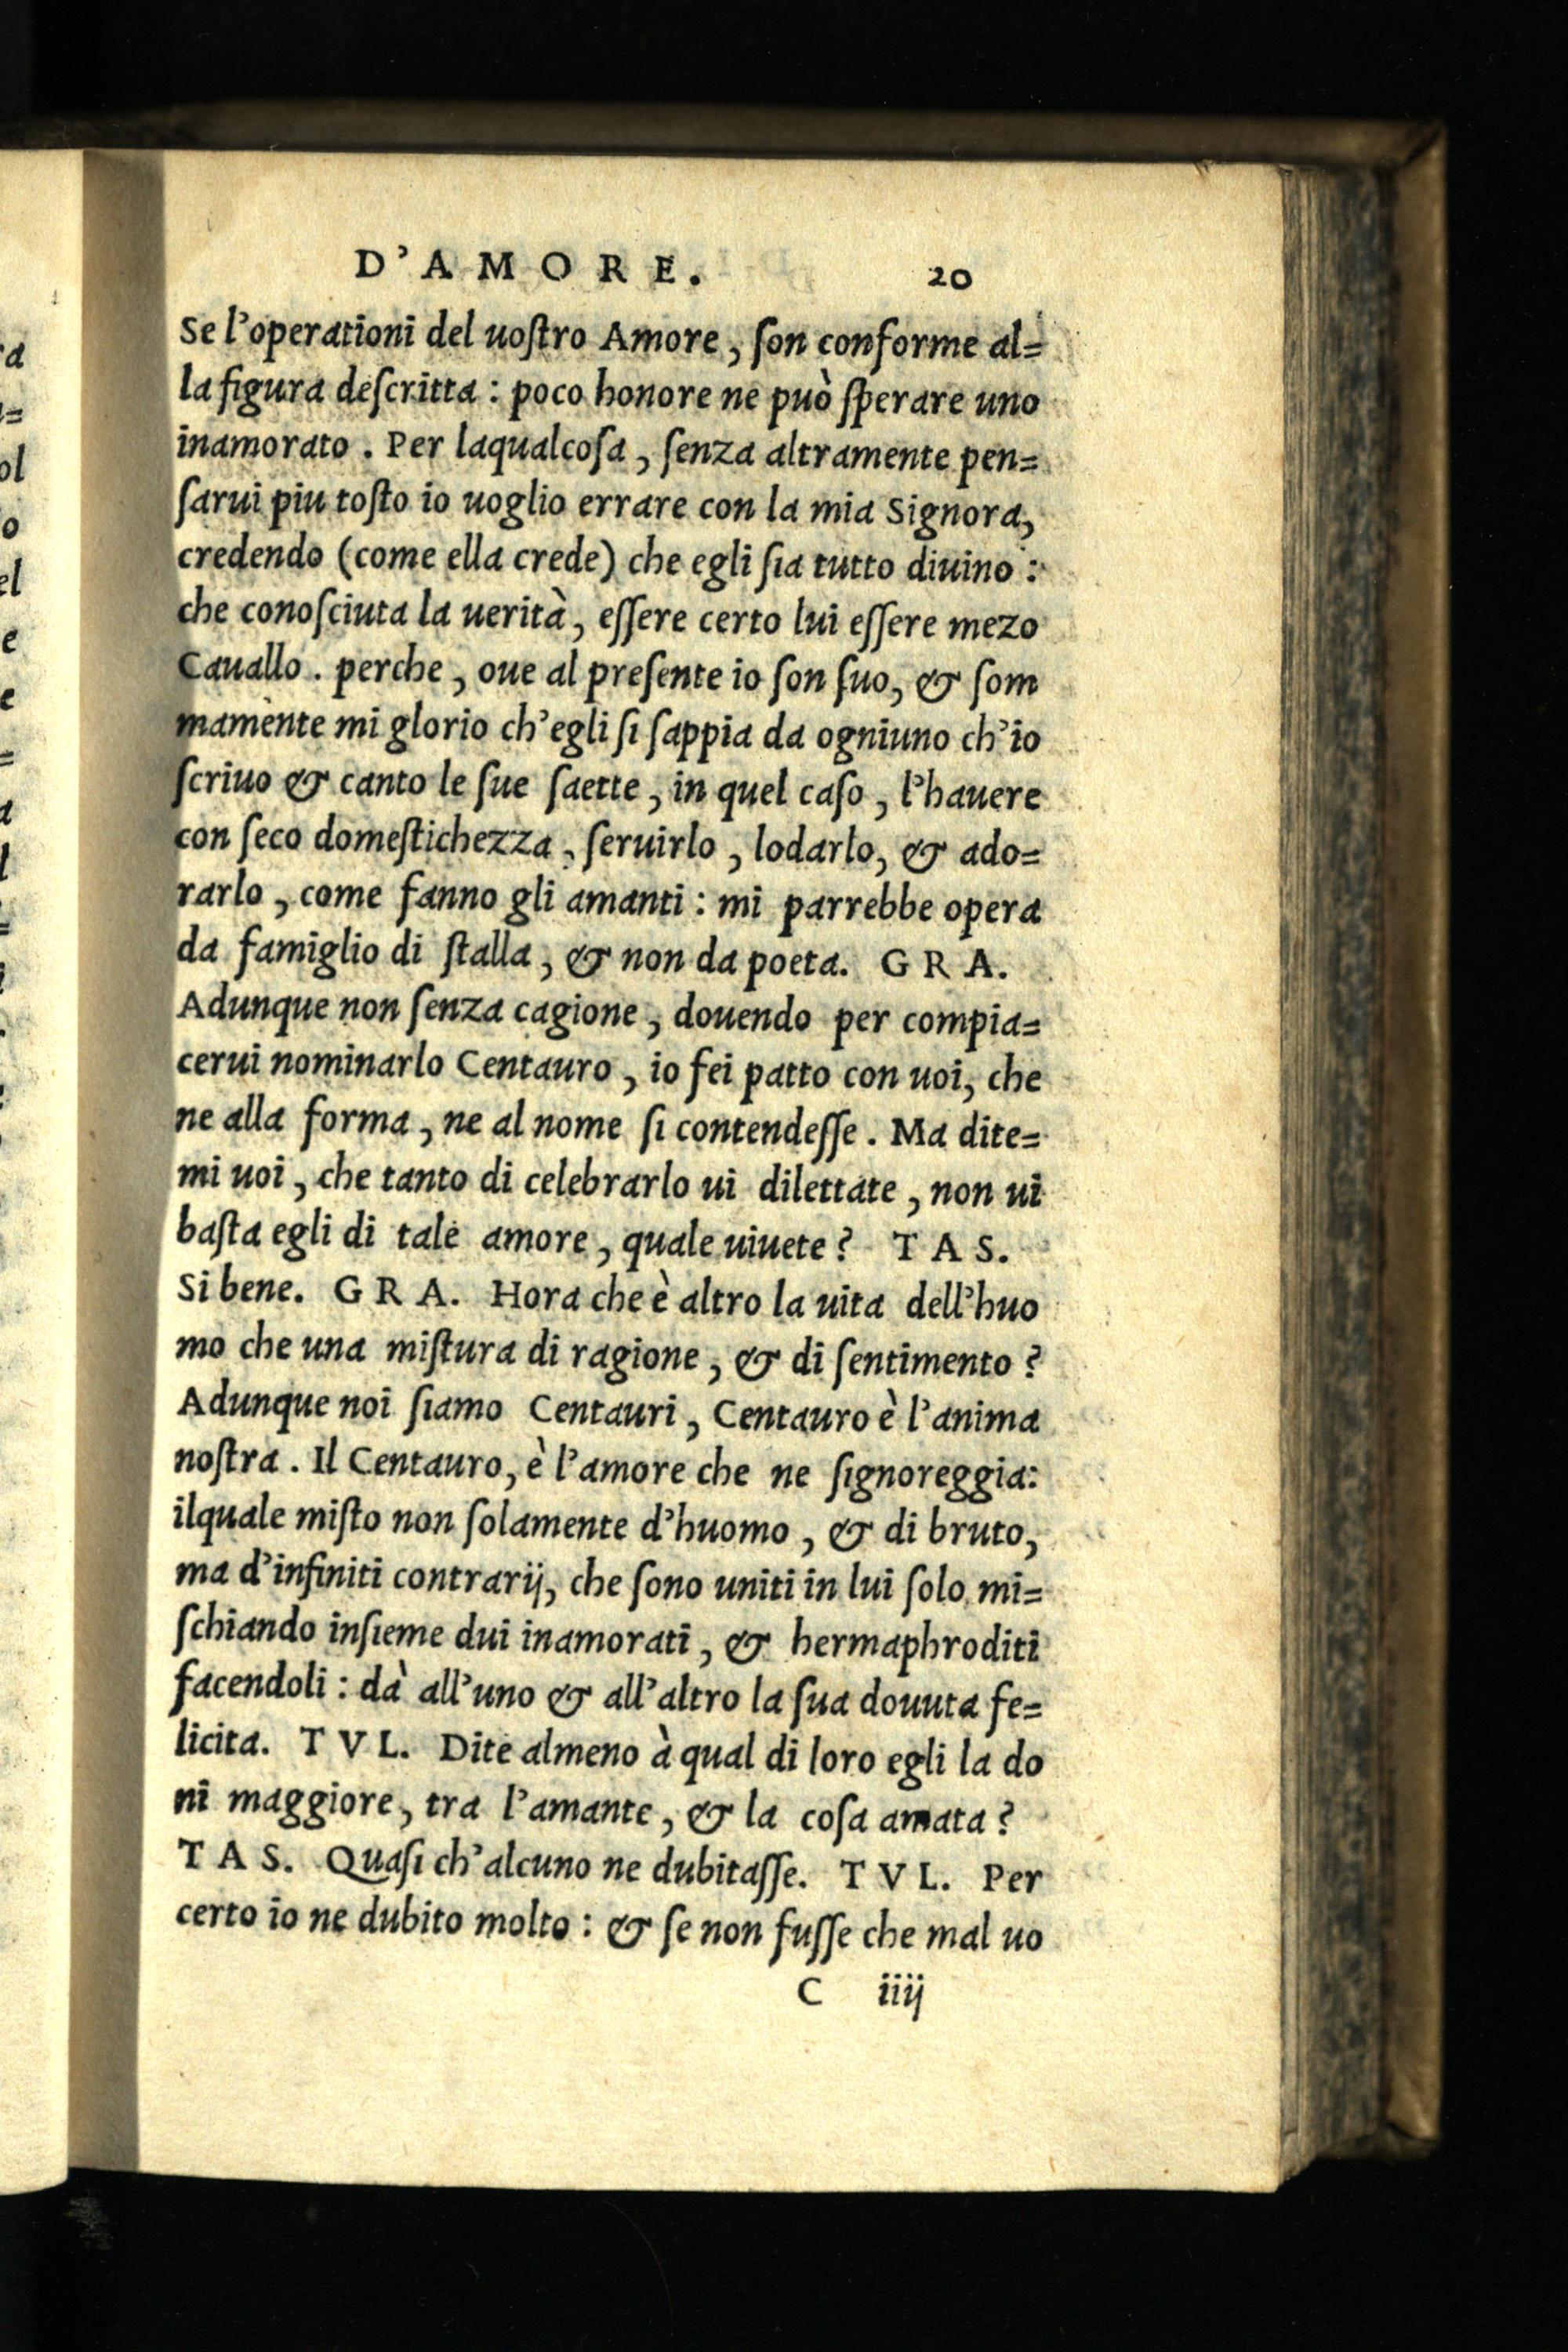 D'AMORE. 20
Se l'operationi del uoſtro Amore, ſon conforme al=
la figura deſcritta: poco honore ne può ſperare uno
inamorato. Per laqualcoſa, ſenza altramente pen=
ſarui piu toſto io uoglio errare con la mia Signora,
credendo (come ella crede) che egli ſia tutto diuino:
che conoſciuta la uerità, eſſere certo lui eſſere mezo
Cauallo. perche, oue al preſente io ſon ſuo, & ſom
mamente mi glorio ch'egli ſi ſappia da ogniuno ch'io
ſcriuo & canto le ſue ſaette, in quel caſo, l'hauere
con ſeco domeſtichezza, ſeruirlo, lodarlo, & ado=
rarlo, come fanno gli amanti: mi parrebbe opera
da famiglio di ſtalla, & non da poeta. GRA.
Adunque non ſenza cagione, douendo per compia=
cerui nominarlo Centauro, io fei patto con uoi, che
ne alla forma, ne al nome ſi contendeſſe. Ma dite=
mi uoi, che tanto di celebrarlo ui dilettate, non ui
baſta egli di tale amore, quale uiuete? TAS.
Si bene. GRA. Hora che è altro la uita dell'huo
mo che una miſtura di ragione, & di ſentimento?
Adunque noi ſiamo Centauri, Centauro è l'anima
noſtra. Il Centauro, è l'amore che ne ſignoreggia:
ilquale miſto non ſolamente d'huomo, & di bruto,
ma d'infiniti contrarij, che ſono uniti in lui ſolo mi=
ſchiando inſieme dui inamorati, & hermaphroditi
facendoli: dà all'uno & all'altro la ſua douuta fe=
licita. TVL. Dite almeno à qual di loro egli la do
ni maggiore, tra l'amante, & la coſa amata?
TAS. Quaſi ch'alcuno ne dubitaſſe. TVL. Per
certo io ne dubito molto: & ſe non fuſſe che mal uo
C iiij